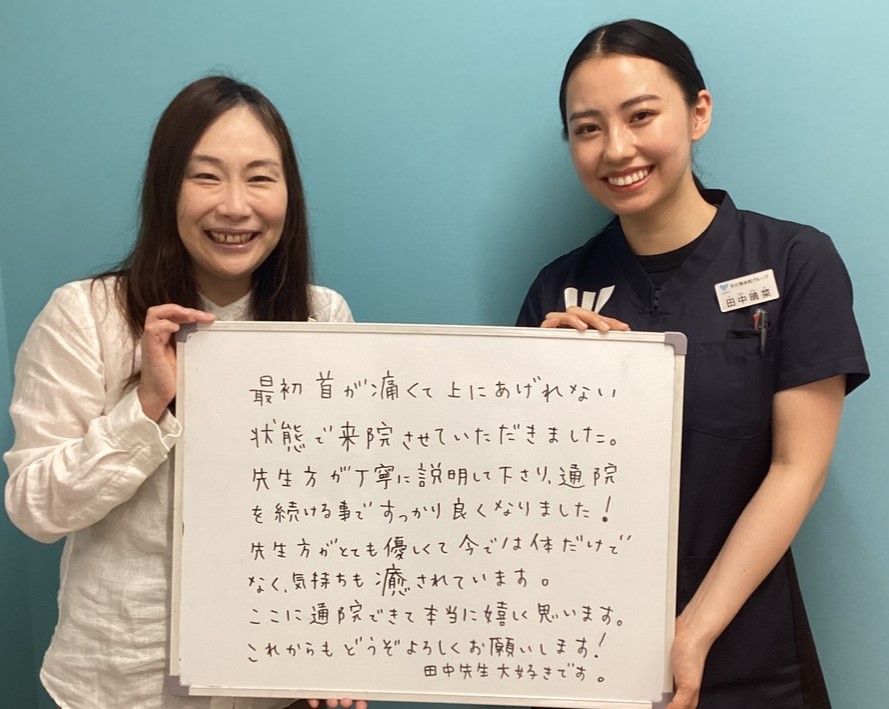 最初 首が痛くて上にあげれない
状態で来院させていただきました。
先生方が丁寧に説明して下さり、通院
を続ける事ですっかり良くなりました!
先生方がとても優しくて今では体だけで
なく、気持ちも癒されています。
ここに通院できて本当に嬉しく思います。
これからもどうぞよろしくお願いします!
田中先生大好きです。
田中晴菜